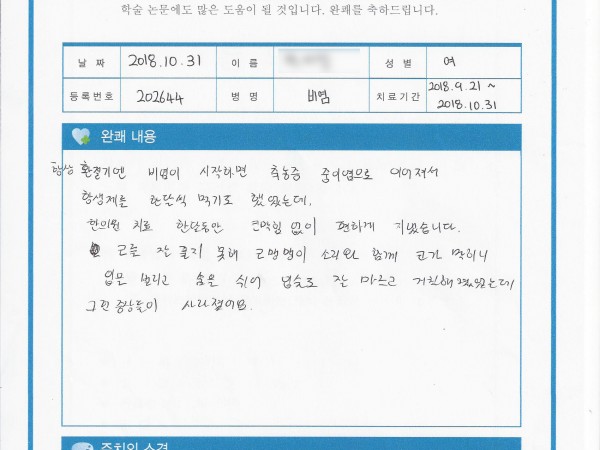 학술 논문에도 많은 도움이 될 것입니다. 완쾌를 축하드립니다.
날 짜 2018.10.31 이 름 성 별 여
등록번호 202644 병 명 비염 치료기간 2018.9.21 ~ 2018.10.31
완쾌 내용
항상 환절기엔 비염이 시작하면 축농증 중이염으로 이어져서
항생제를 한달씩 먹기도 했었는데,
한의원 치료 한달동안 코막힘 없이 편하게 지냈습니다.
코를 잘 풀지 못해 소리와 함께 코가 막히니
입만 벌리고 숨을 쉬어 입술도 잘 마르고 거칠해졌었는데
그런 증상들이 사라졌어요.
주치의 소견